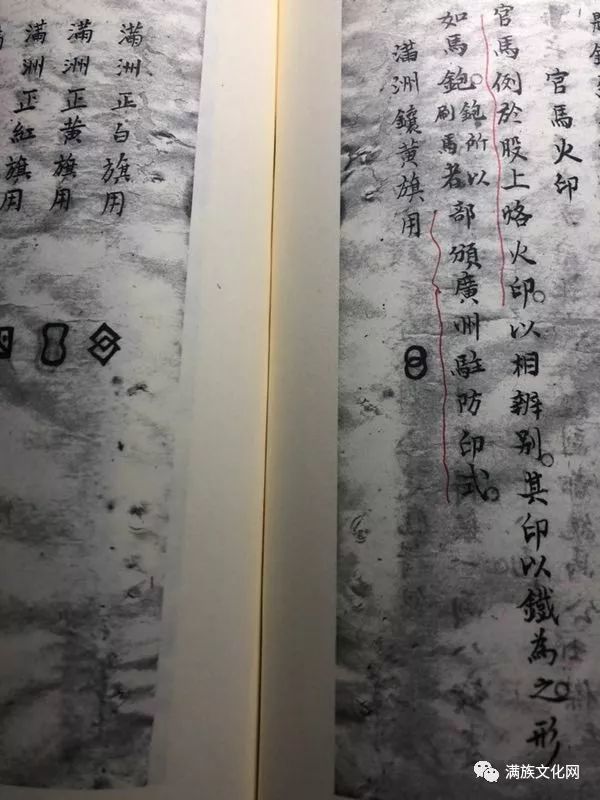 官馬火印
官馬例於股上烙火印。以相辨别。其印以鐵為之。形
如馬鉋。鉋所以刷馬者部頒廣州駐防印式。
滿洲鑲黃旗用
滿洲正白旗用
滿洲正黃旗用
滿洲正紅旗用
满族文化网